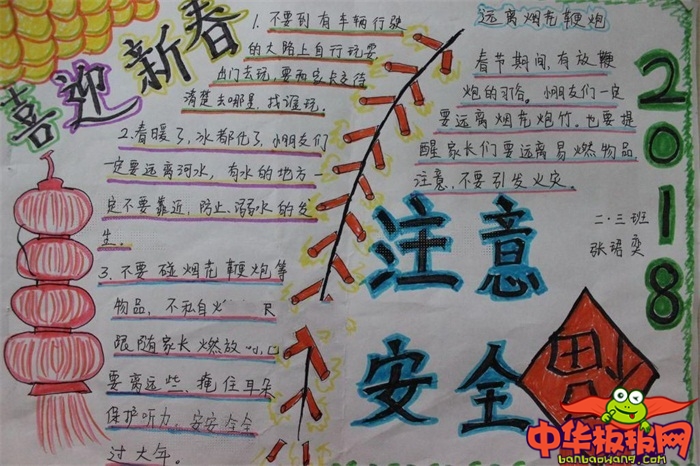 喜迎新春
1.不要到有车辆行驶
的大路上自行玩耍
出门去玩,要和家长交待
清楚去哪里,找谁玩。
2.春暖了,冰都化了,小朋友们一
定要远离河水,有水的地方一
定不要靠近,防止溺水的发
生。
3.不要碰烟花鞭炮等
物品,不私自
跟随家长燃放
要离远些,捂住耳朵
保护听力,安安全全
过大年。
远离烟花鞭炮
春节期间,有放鞭
炮的习俗。小朋友们一定
要远离烟花炮竹。也要提
醒家长们要远离易燃物品
注意,不要引发火灾。
2018
二·三班
张珺奕
注意
安全
福
中华板报网
banbaowang.com